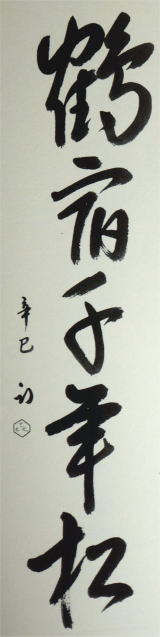 鶴宿千年松
辛巳